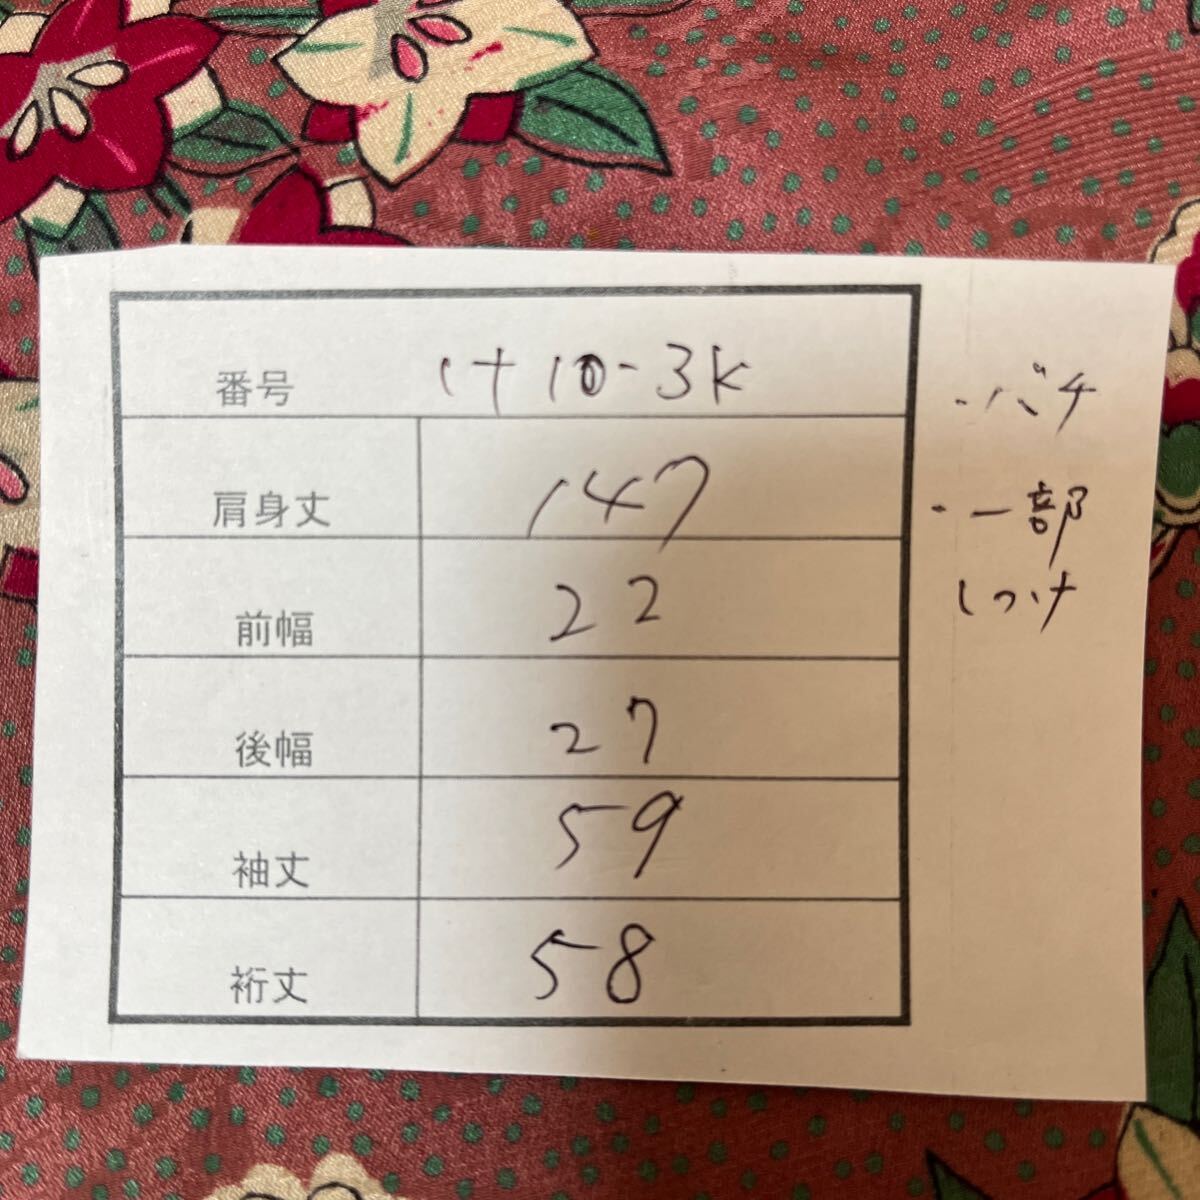 番号 け10-3K
肩身丈 147
前幅 22
後幅 27
袖丈 59
裄丈 58
・バチ
・一部
しつけ